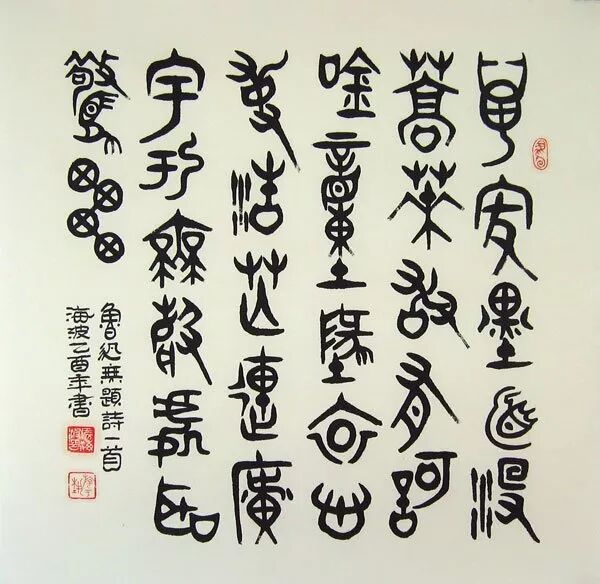 萬家墨面沒
蒿萊敢有歌
吟動地哀心
事浩茫連廣
宇於無聲處聽
驚雷
魯迅無題詩一首
海波乙酉年書